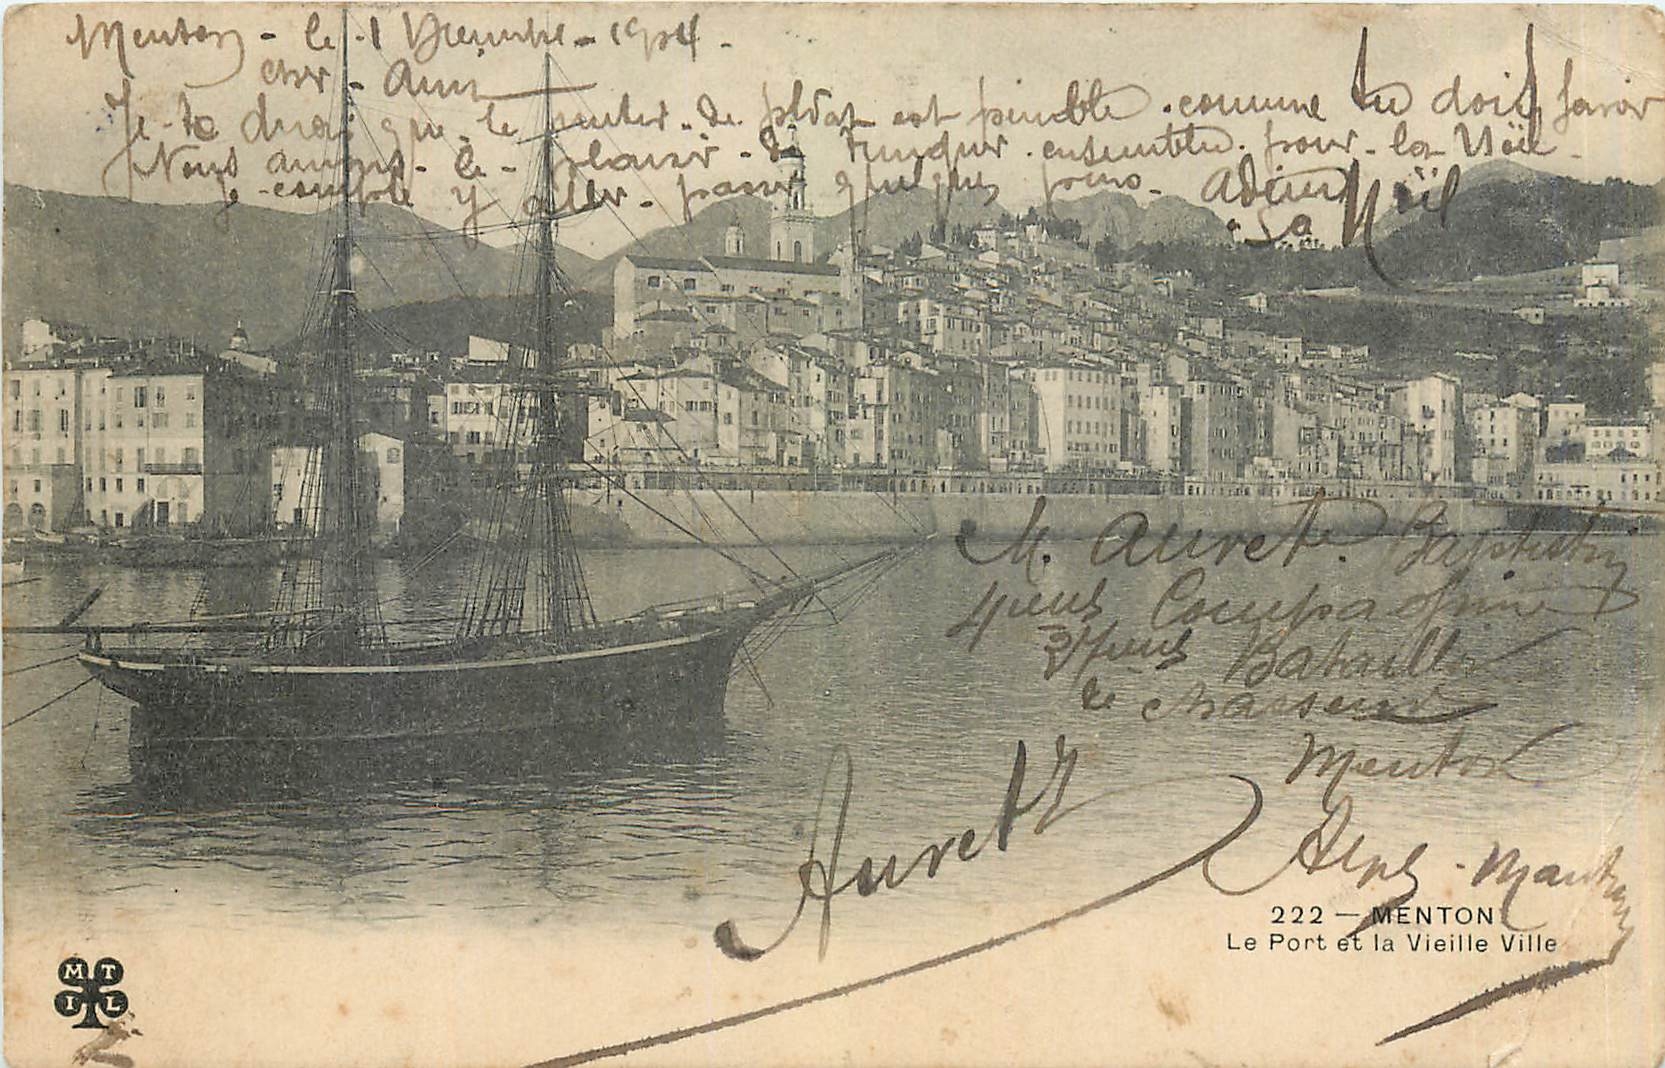 Menton - le 1 Décembre - 1904 -
cher - Ami
Je te dirai que - le metier - de soldat est penible - comme tu doit savoir
Nous aurons - le - plaisir - de trinquer - ensemble - pour - la Noël -
Je - compte y aller - passer quelques jours - adieu
a la Noël
M. Auret. Baptistin
4ieme Compagnie
27ieme Bataillon
de chasseur
Menton
Alpes - Maritimes
Auret
222 — MENTON
Le Port et la Vieille Ville
M T
I L